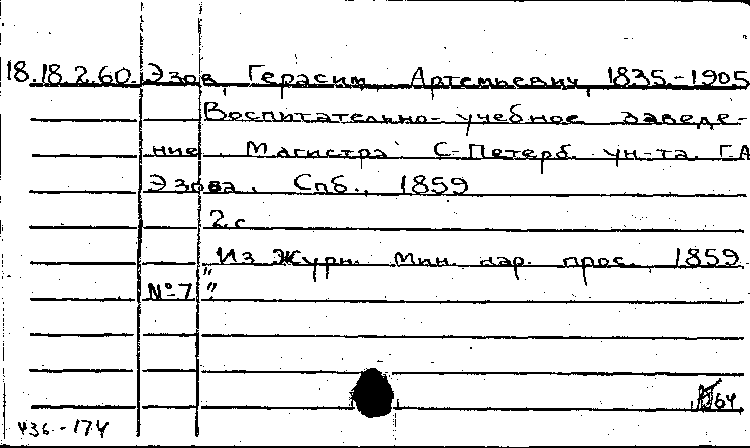 18.18.2.60. Эзов, Герасим Артемьевич, 1835.-1905
Воспитательно-учебное заведе-
ние Магистра С-Петерб. ун-та Г.А
Эзова. Спб., 1859
2 с
"Из Журн. Мин. нар. прос. 1859
№7"
64
436.-174